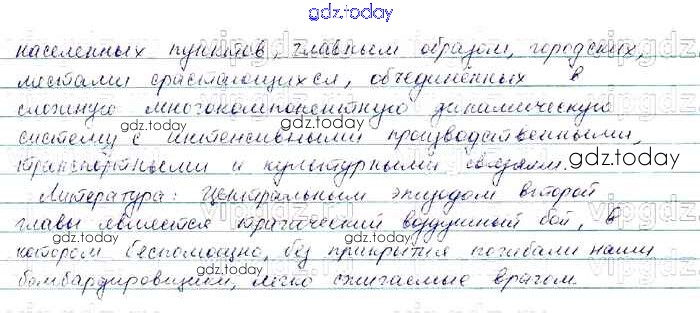 gdz.today
населенных пунктов, главным образом, городских,
местами срастающихся, объединенных в
сложную многокомпонентную динамическую
систему с интенсивными производственными,
транспортными и культурными связями.
Литература: Центральным эпизодом второй
главы является трагический воздушный бой, в
котором беспомощно, без прикрытия погибали наши
бомбардировщики, легко сжигаемые врагом.